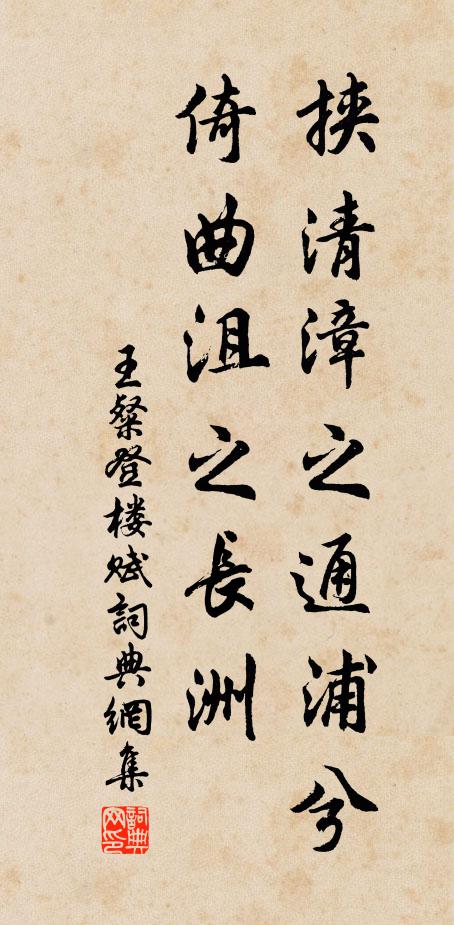 挟清漳之通浦兮
倚曲沮之長洲
王粲登楼赋詞典網集
詞典网印